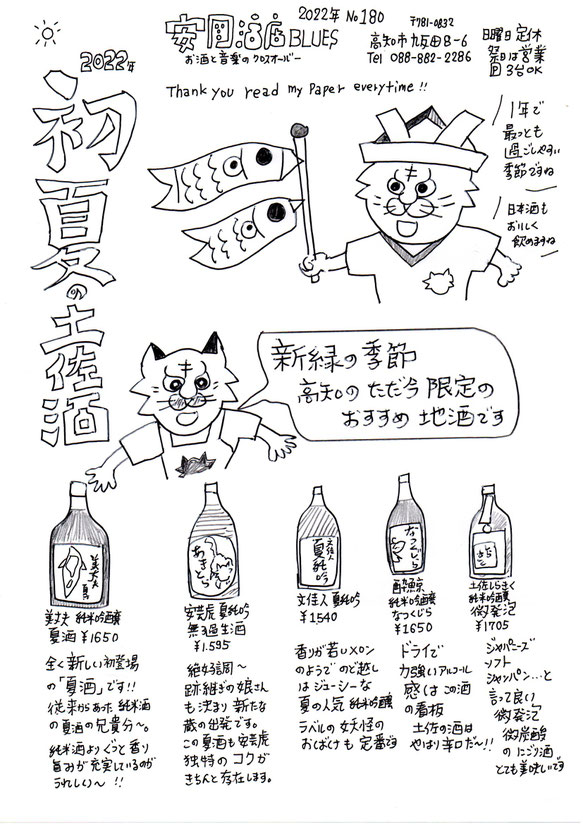 2022年 No.180
安岡酒店BLUES
お酒と音楽のクロスオーバー
〒781-0832
高知市九反田8-6
Tel 088-882-2286
日曜日定休
祭日は営業
P 3台OK
Thank you read my Paper everytime!!
2022年
初夏の土佐酒
1年で
最っとも
過ごしやすい
季節ですね
日本酒も
おいしく
飲めますね
新緑の季節
高知のただ今限定の
おすすめ地酒です
美丈夫 夏
美丈夫 純米吟醸
夏酒 ¥1650
全く新しい初登場
の「夏酒」です!!
従来からあった純米酒
の夏酒の兄貴分〜。
純米酒よりぐっと香り
旨みが充実しているのが
うれしい〜!!
あきとら
安芸虎 夏純吟
無ろ過生酒
¥1.595
絶好調〜
跡継ぎの娘さん
も決まり新たな
蔵の出発です。
この夏酒も安芸虎
独特のコクが
きちんと存在します。
文佳人
夏純吟
文佳人 夏純吟
¥1540
香りが若いメロン
のようで のど越し
はジューシーな
夏の人気純米吟醸
ラベルの妖怪の
おばけも定番です
なつくじら
酔鯨
純米吟醸
なつくじら
¥1650
ドライで
力強いアルコール
感はこの酒
の看板
土佐の酒は
やはり辛口だ〜!!
土佐しらぎく
純米吟醸
微発泡
¥1705
ジャパニーズ
ソフト
シャンパン…と
言って良い
微発泡
微炭酸
のにごり酒
とても美味しいです